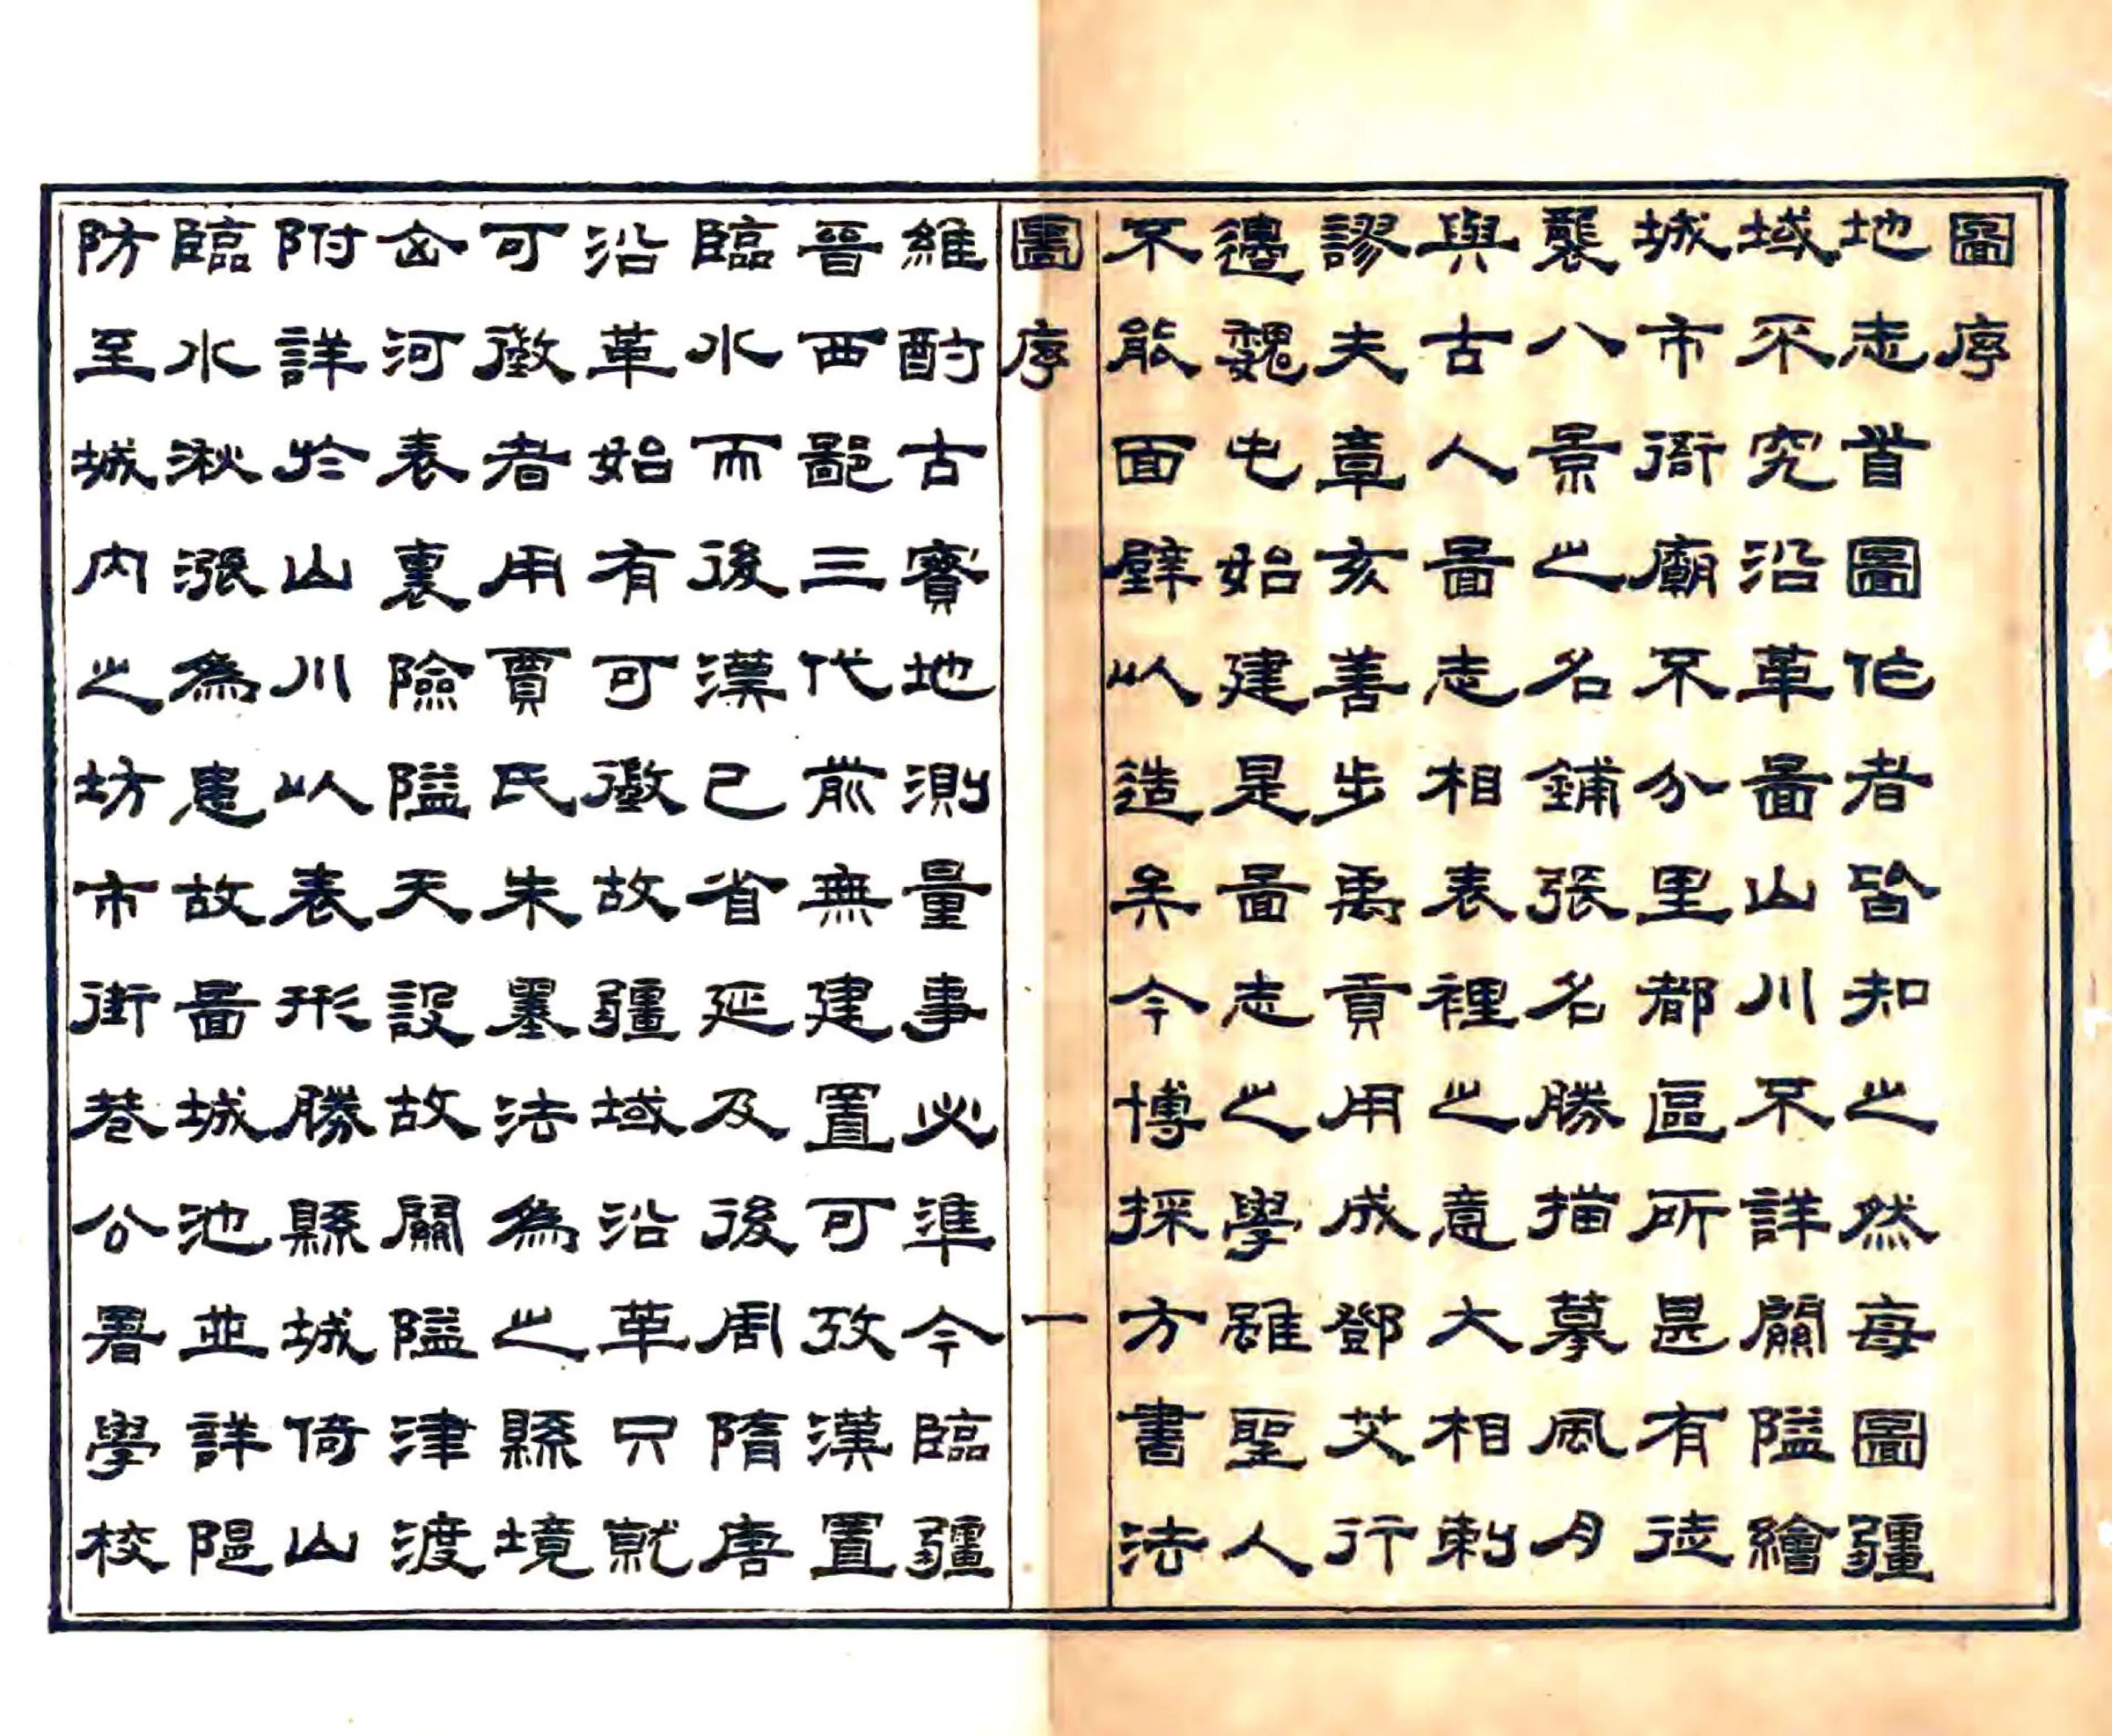 圖序
地志首圖作者皆知之然每圖疆
域不究沿革圖山川不詳關隘繪
城市衙廟不分里都區所甚有徒
襲八景之名鋪張名勝描摹風月
與古人圖志相表裡之意大相刺
謬夫章亥善步禹貢用成鄧艾行
邊魏屯始建是圖志之學雖聖人
不能面壁以造矣今博採方書法
圖序 一
維酌古實地測量事必準今臨疆
晉西鄙三代前無建置可攷漢置
臨水而後漢已省延及後周隋唐
沿革始有可徵故疆域沿革只就
可徵者用賈氏朱墨法為之縣境
岳河表裏險隘天設故關隘津渡
附詳於山川以表形勝縣城倚山
臨水湫漲為患故圖城池並詳隄
防至城內之坊市街巷公署學校